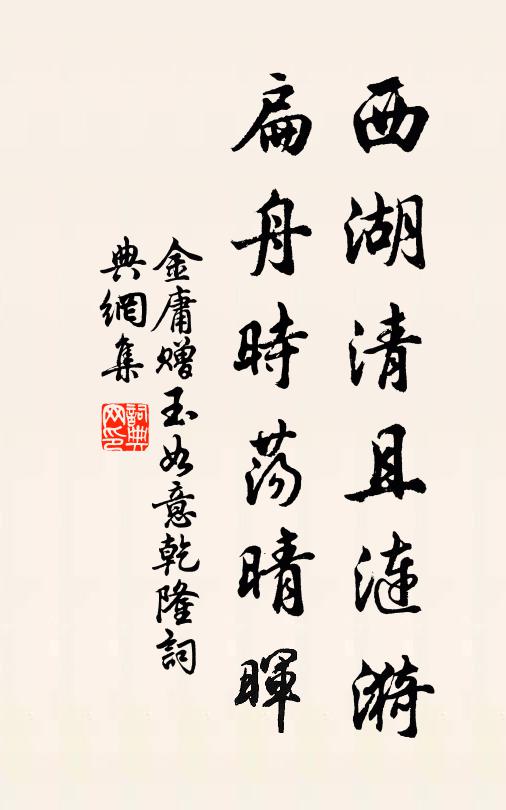 西湖清且漣漪
扁舟時蕩晴暉
金庸赠玉如意乾隆詞
典網集
詞典網印